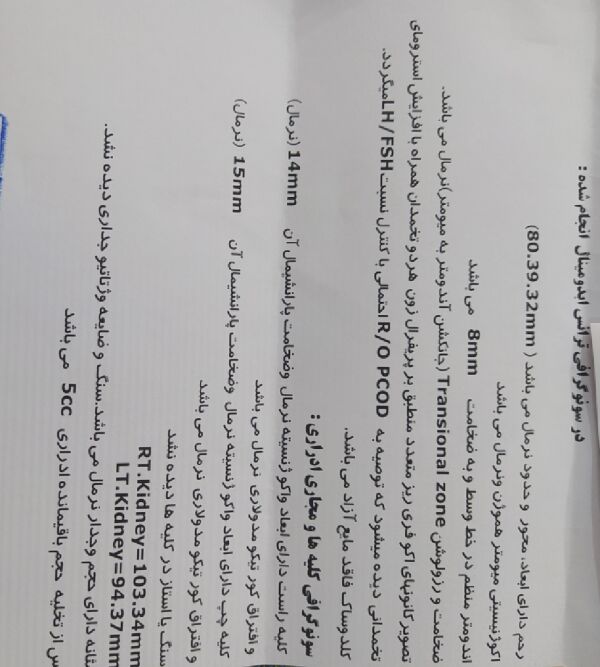 در سونوگرافی ترانس ابدومینال انجام شده :
رحم دارای ابعاد، محور و حدود نرمال می باشد ( 80.39.32mm)
اکوژنیسیتی میومتر هموژن ونرمال می باشد
اندومتر منظم در خط وسط و به ضخامت 8mm می باشد
ضخامت و رزولوشن Transional zone (جانکشن آندومتر به میومتر)نرمال می باشد.
تصویر کانونهای اکو فری ریز متعدد منطبق بر پریفرال زون هردو تخمدان همراه با افزایش استرومای
تخمدانی دیده میشود که توصیه به R/O PCOD احتمالی با کنترل نسبت LH/FSHمیگردد.
کلدوساک فاقد مایع آزاد می باشد.
سونوگرافی کلیه ها و مجاری ادراری :
کلیه راست دارای ابعاد واکوژنسیته نرمال وضخامت پارانشیمال آن 14mm (نرمال)
و افتراق کورتیکو مدولاری نرمال می باشد
کلیه چپ دارای ابعاد واکوژنسیته نرمال وضخامت پارانشیمال آن 15mm (نرمال)
و افتراق کورتیکو مدولاری نرمال می باشد
سنگ یا استاز در کلیه ها دیده نشد
RT.Kidney=103.34mm
LT.Kidney=94.37mm
مثانه دارای حجم وجدار نرمال می باشد.سنگ و ضایعه وژتاتیو جداری دیده نشد.
پس از تخلیه حجم باقیمانده ادراری 5cc می باشد